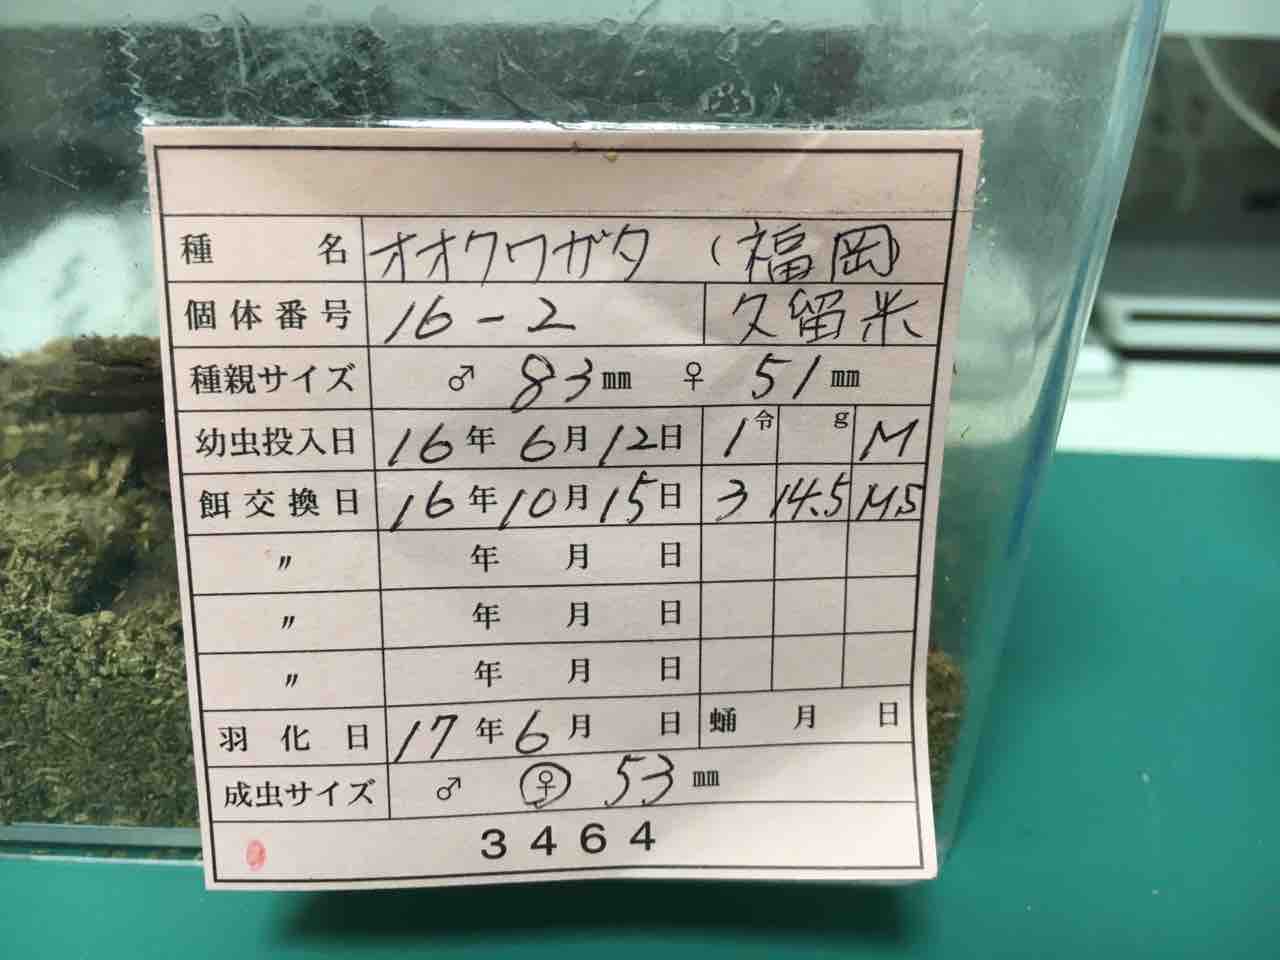 種名 オオクワガタ (福岡)
個体番号 16-2 久留米
種親サイズ ♂ 83mm ♀ 51mm
幼虫投入日 16年6月12日 1令 g M
餌交換日 16年10月15日 3 14.5 M5
〃 年 月 日
〃 年 月 日
〃 年 月 日
羽化日 17年6月 日 蛹 月 日
成虫サイズ ♂ ♀ 53mm
3464